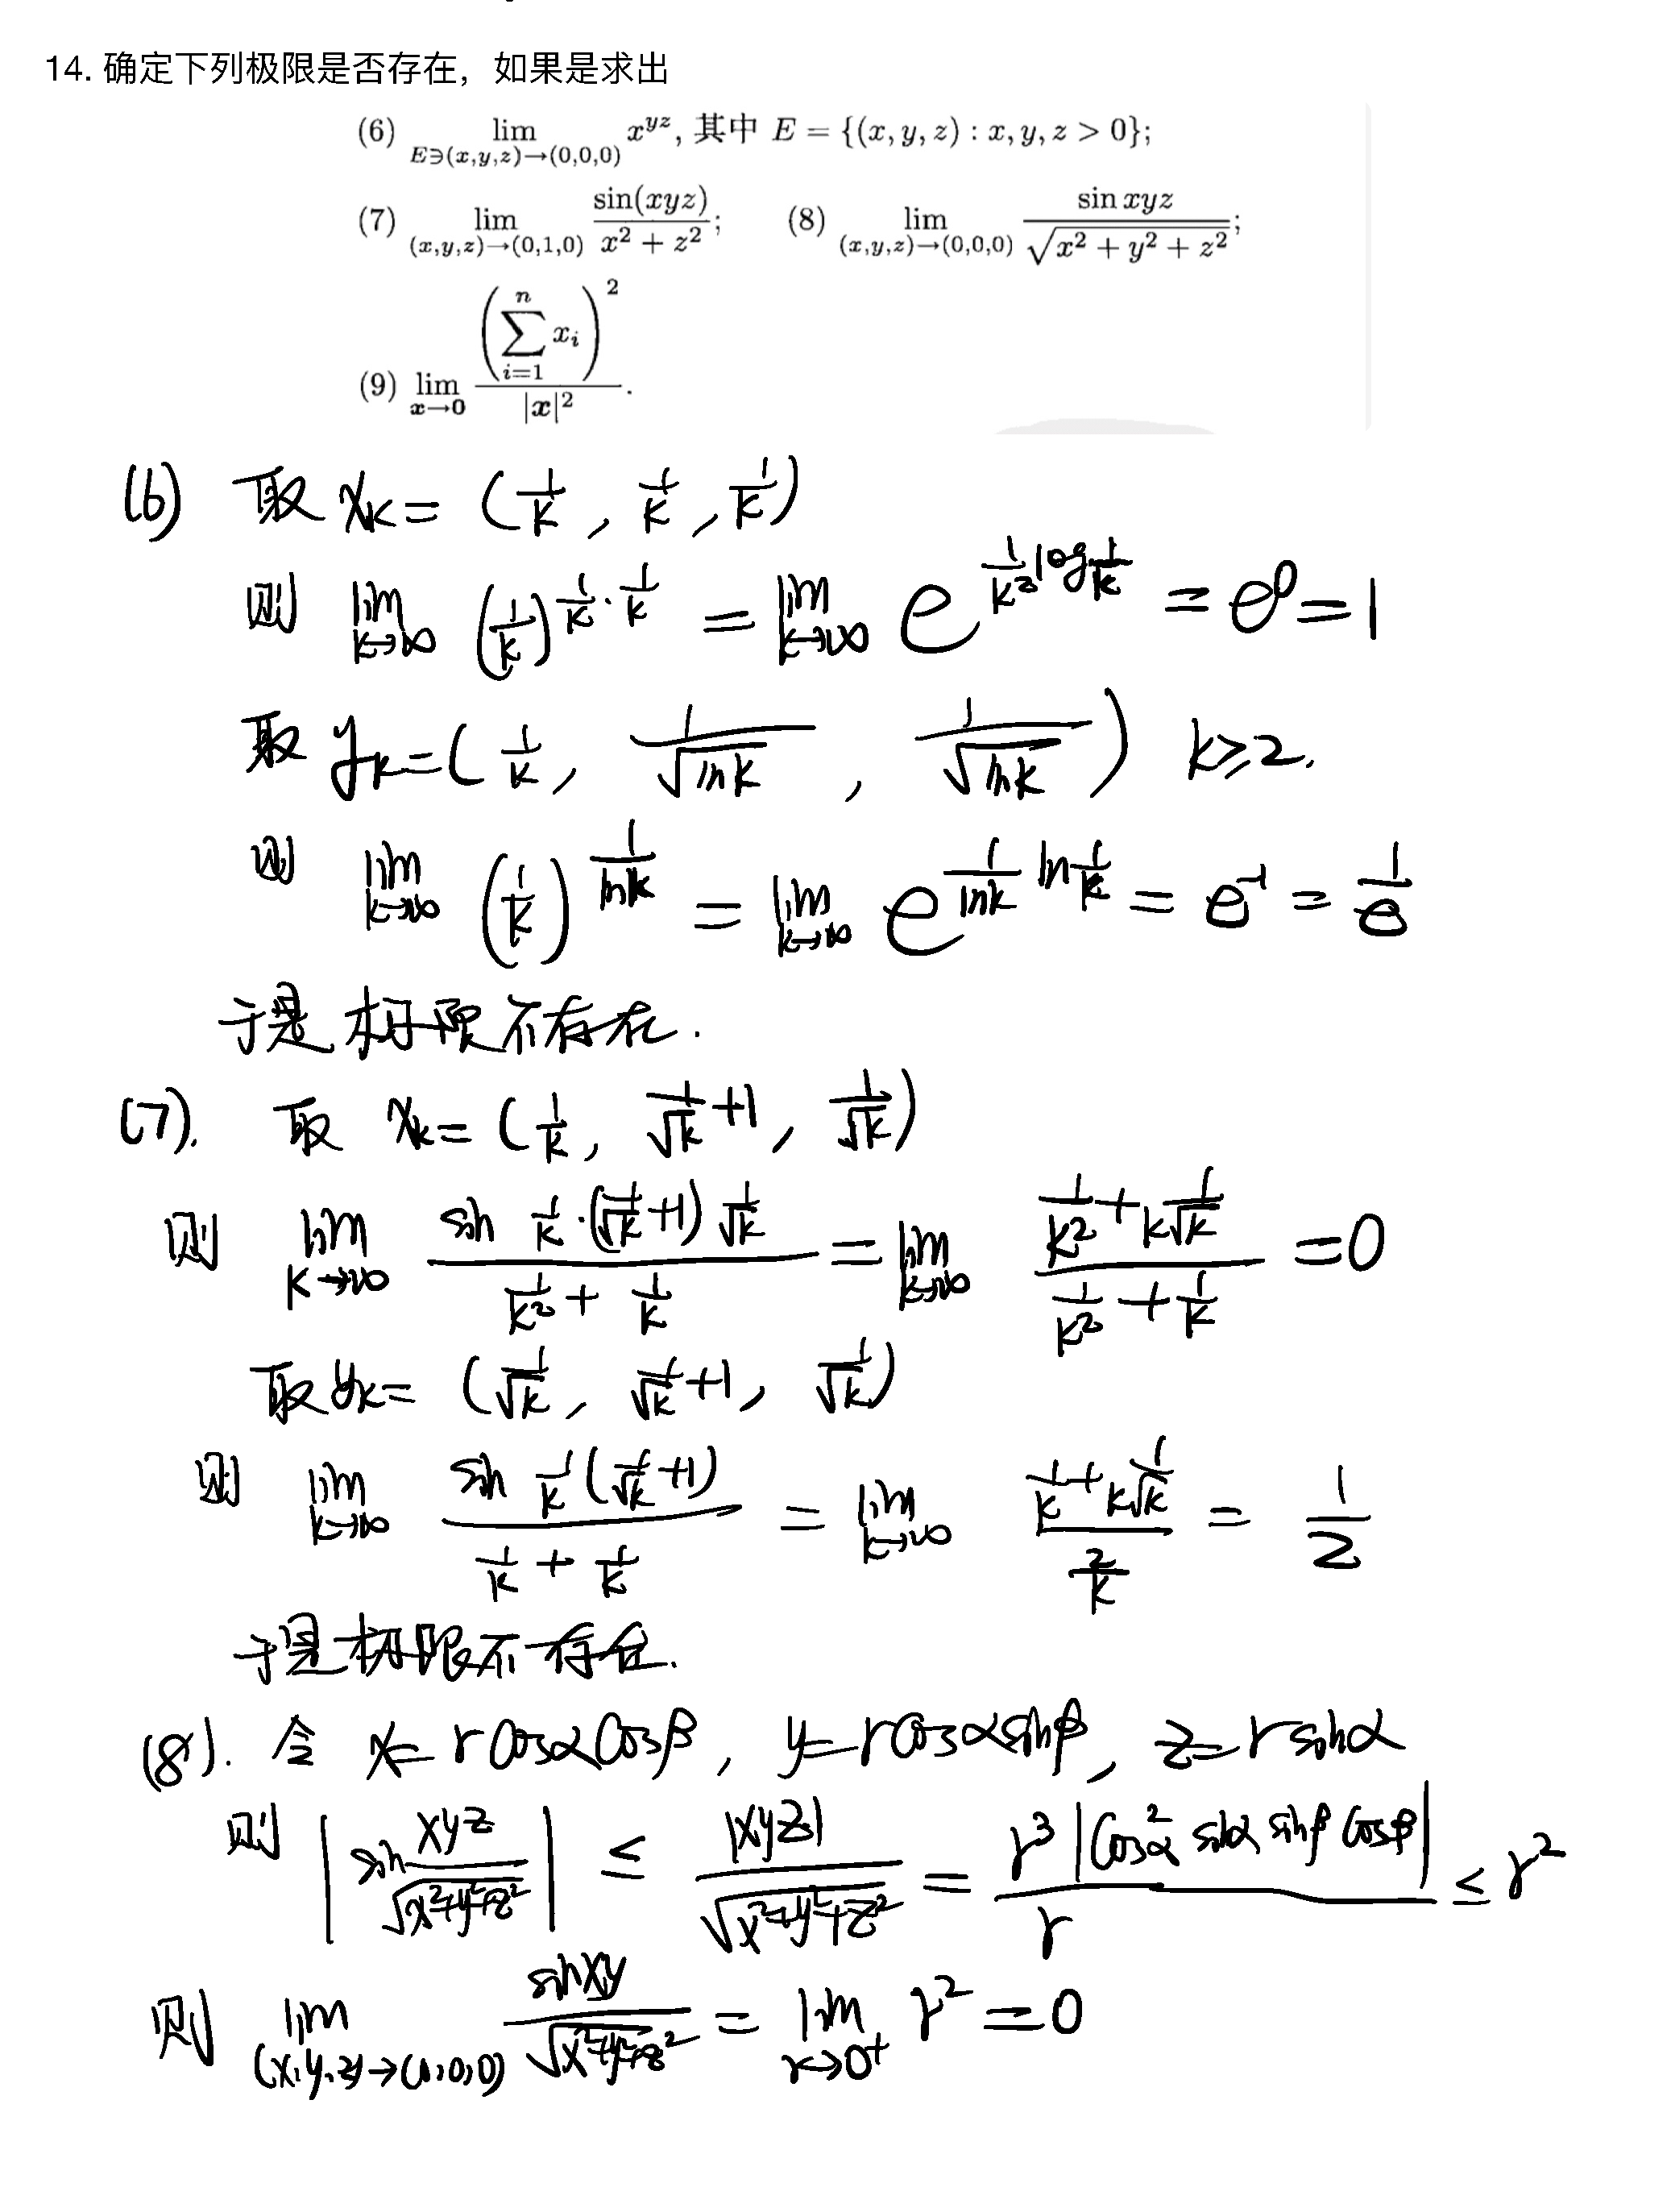 14. 确定下列极限是否存在，如果是求出
(6) lim_{E∋(x,y,z)→(0,0,0)} x^{yz}, 其中 E = {(x, y, z) : x, y, z > 0};
(7) lim_{(x,y,z)→(0,1,0)} sin(xyz)/(x² + z²); (8) lim_{(x,y,z)→(0,0,0)} sin xyz/√(x² + y² + z²);
(9) lim_{x→0} (∑_{i=1}^{n} x_i)²/|x|².
(6) 取 x_k = (1/k, 1/k, 1/k)
则 lim_{k→∞} (1/k)^{1/k·1/k} = lim_{k→∞} e^{1/k² log 1/k} = e⁰ = 1
取 y_k = (1/k, 1/√(ln k), 1/√(ln k)) k≥2.
则 lim_{k→∞} (1/k)^{1/ln k} = lim_{k→∞} e^{1/ln k ln 1/k} = e⁻¹ = 1/e
于是极限不存在.
(7). 取 x_k = (1/k, 1/√k + 1, 1/√k)
则 lim_{k→∞} (sin 1/k·(1/√k + 1) 1/√k)/(1/k² + 1/k) = lim_{k→∞} (1/k² + 1/(k√k))/(1/k² + 1/k) = 0
取 y_k = (1/√k, 1/√k + 1, 1/√k)
则 lim_{k→∞} (sin 1/k (1/√k + 1))/(1/k + 1/k) = lim_{k→∞} (1/k + 1/(k√k))/(2/k) = 1/2
于是极限不存在.
(8). 令 x = r cosα cosβ, y = r cosα sinβ, z = r sinα
则 |sin xyz/√(x²+y²+z²)| ≤ |xyz|/√(x²+y²+z²) = r³|cos²α sinα sinβ cosβ|/r ≤ r²
则 lim_{(x,y,z)→(0,0,0)} sin xy/√(x²+y²+z²) = lim_{r→0⁺} r² = 0